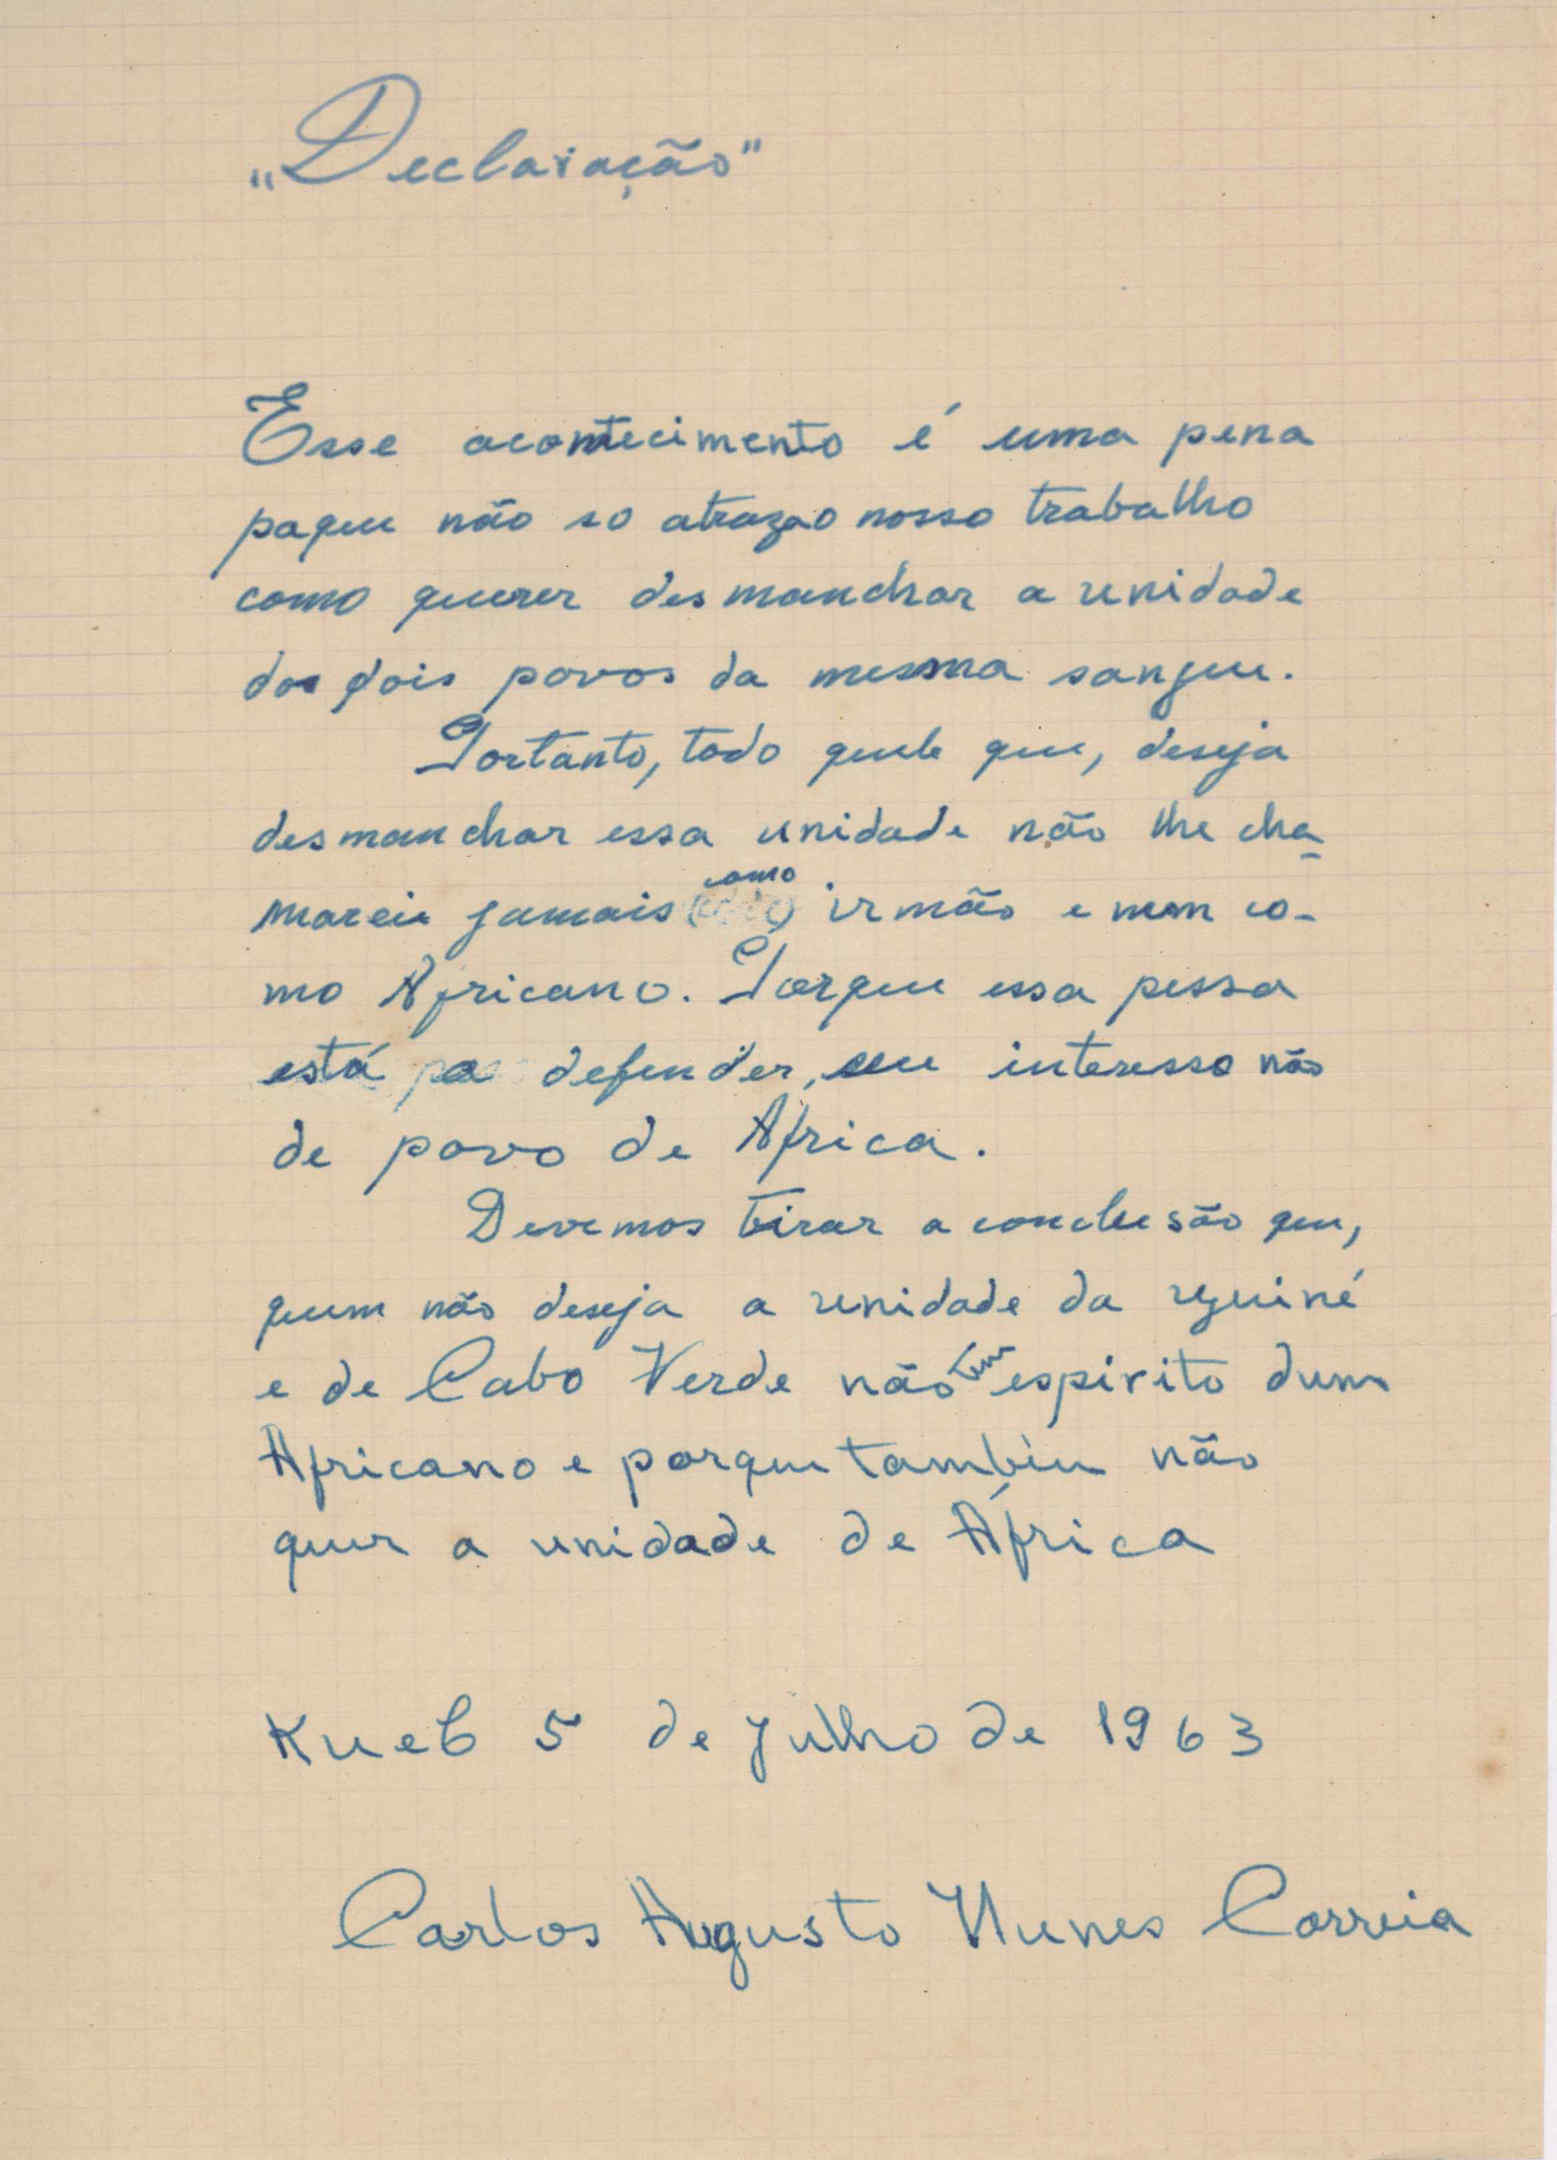 „Declaração"
Esse acontecimento é uma pena
paque não so atrazao nosso trabalho
como querer desmanchar a unidade
dos dois povos da mesma sangue.
Portanto, todo quele que, deseja
desmanchar essa unidade não lhe cha
marei jamais como irmão e nem co-
mo Africano. Porque essa pessa
está pa defender, seu interesso não
de povo de Africa.
Devemos tirar a conclusão que,
quem não deseja a unidade da Guiné
e de Cabo Verde não tem espirito dum
Africano e porque tambèm não
quer a unidade de África
5 de Julho de 1963
Carlos Augusto Nunes Correia